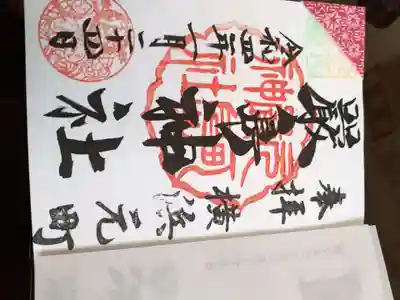 奉拝 横浜元町
嚴島神社
令和四年一月二十四日